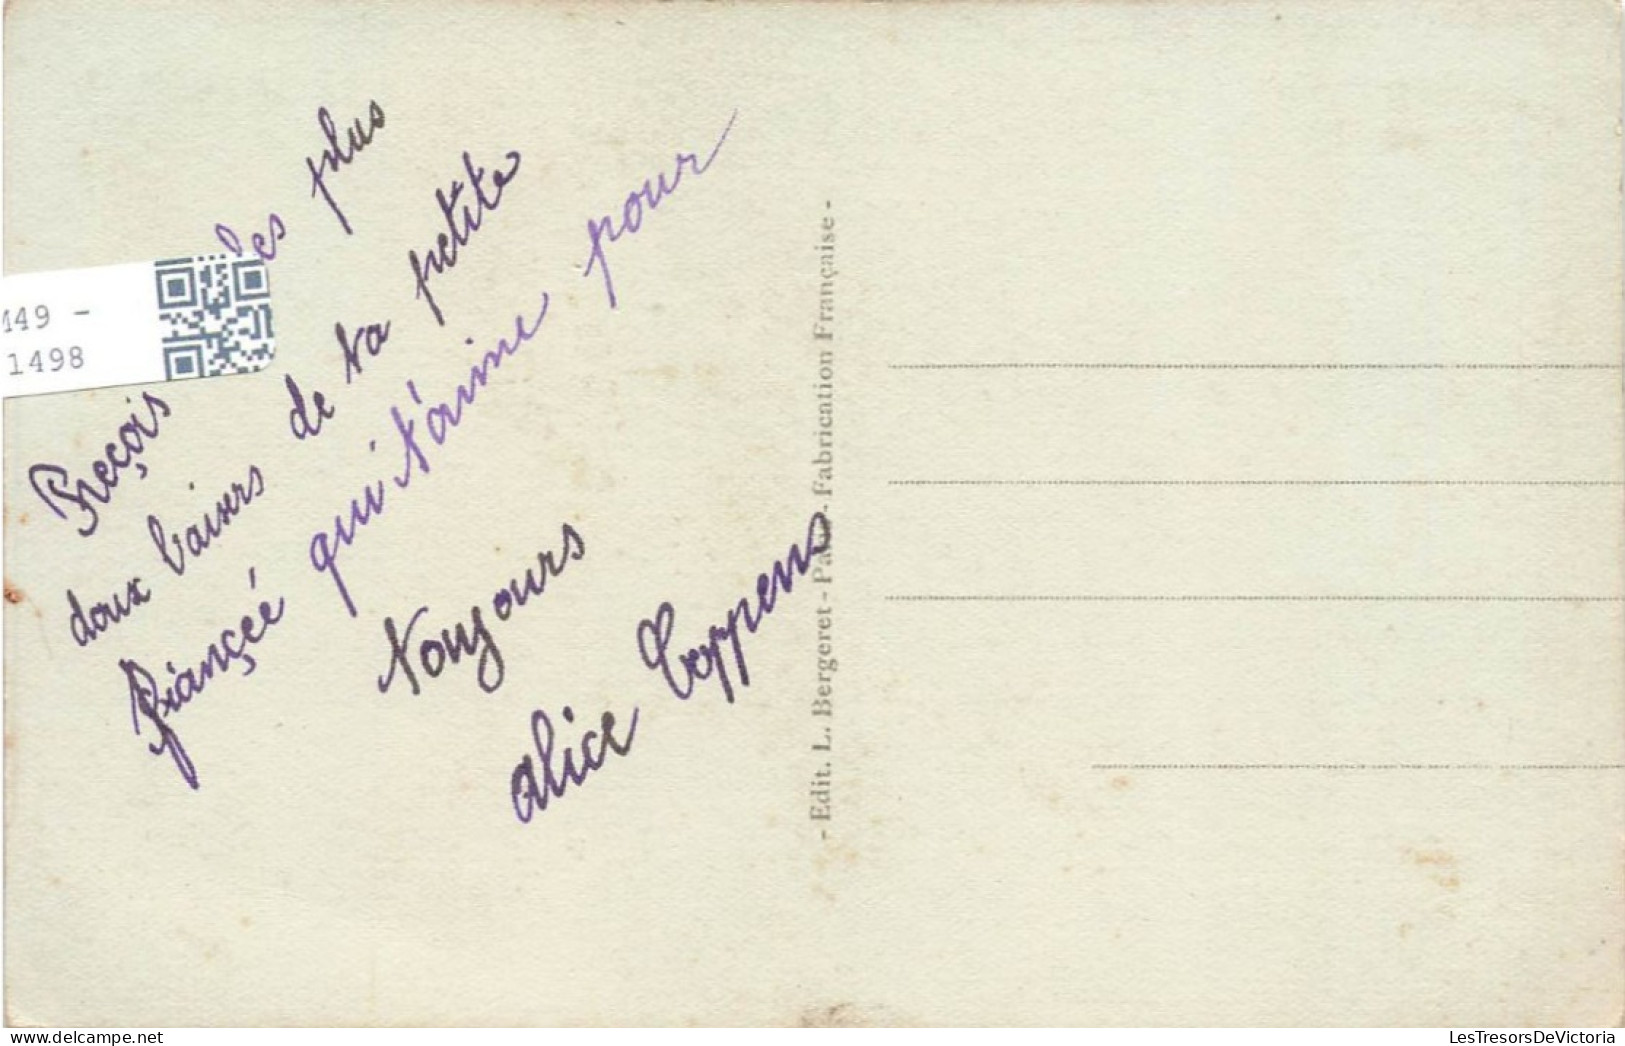 Reçois les plus
doux baisers de ta petite
fiançée qui t'aime pour
toujours
alice Coppens
- Edit. L. Bergeret - Paris - Fabrication Française -
149 -
1498
LesTresorsDeVictoria